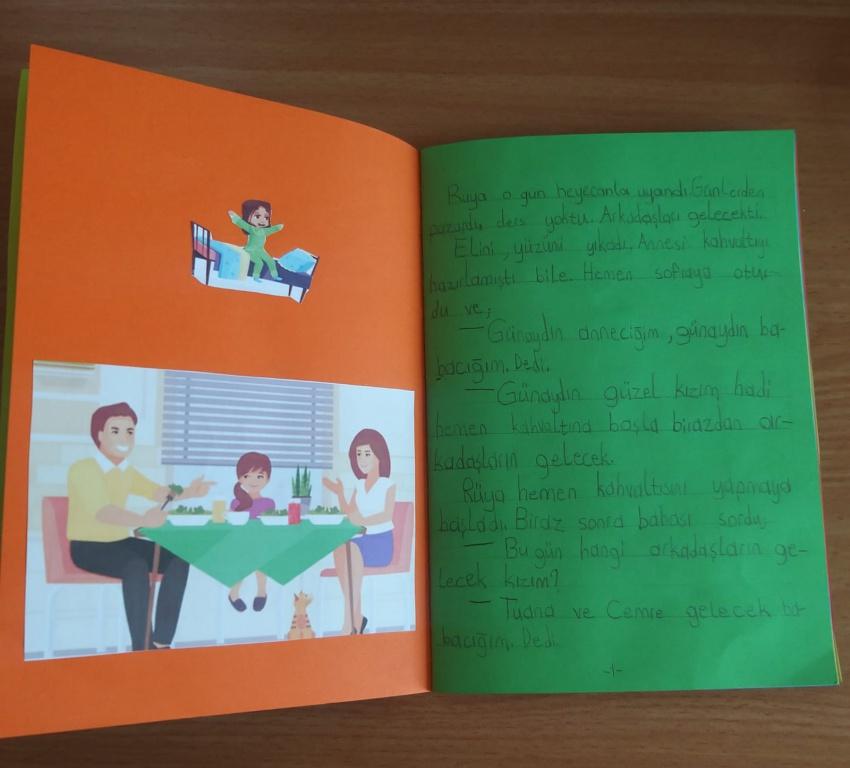 Rüya o gün heyecanla uyandı. Günlerden
pazardı, ders yoktu. Arkadaşları gelecekti.
Elini, yüzünü yıkadı. Annesi kahvaltıyı
hazırlamıştı bile. Hemen sofraya otur-
du ve;
— Günaydın anneciğim, günaydın ba-
bacığım. Dedi.
— Günaydın güzel kızım hadi
hemen kahvaltına başla birazdan ar-
kadaşların gelecek.
Rüya hemen kahvaltısını yapmaya
başladı. Biraz sonra babası sordu;
— Bugün hangi arkadaşların ge-
lecek kızım?
— Tuana ve Cemre gelecek ba-
bacığım. Dedi.
-1-